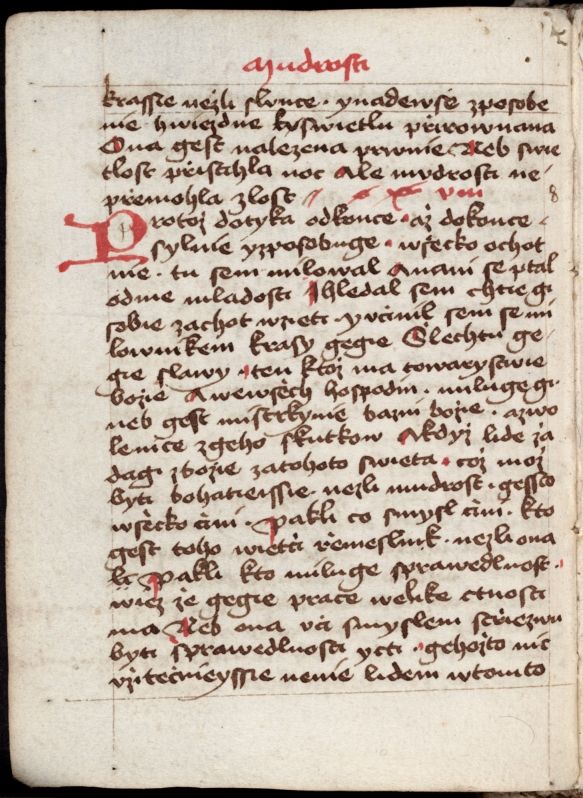 Mudrosti
krassie nezli slunce · ynadewsě zposobe
nie hwiezdne kyswietlu přirownana
Ona gest nalezena prwnie Neb swie
tlost přistahla noc Ale mudrosti ne
přemohla zlost xviii 8
Protoz dotyka odkonce · až dokonce ·
sylnie yzposobuge · wšecko ochot
nie · tu sem milowal Anani se ptal
odmie mladosti Ihledal sem chtie gi
sobie zachot wzieti · yvčinil sem se mi
lownikem krasy gegie Šlechtu ge-
gie slawy · ten ktož ma towarystwie
božie Awewšech hospodin · miluge gi ·
neb gest mistrkynie bazni božie · azwo
lenice zgeho skutkow Akdyž lide ža
dagi zbožie zatohoto swieta · což mož
byti bohatieissie · nezli mudrost · gessto
wšecko čini · Pakli co smysl čini · kto
gest toho wietči řemeslnik · nezli ona
li Pakli kto miluge sprawedlnost ·
wiez že gegie prace welike ctnosti
ma Neb ona vči smyslem střiezwu
byti sprawedlnosti ycti · gehožto nic
vžitečnieyssie nenie lidem wtomto